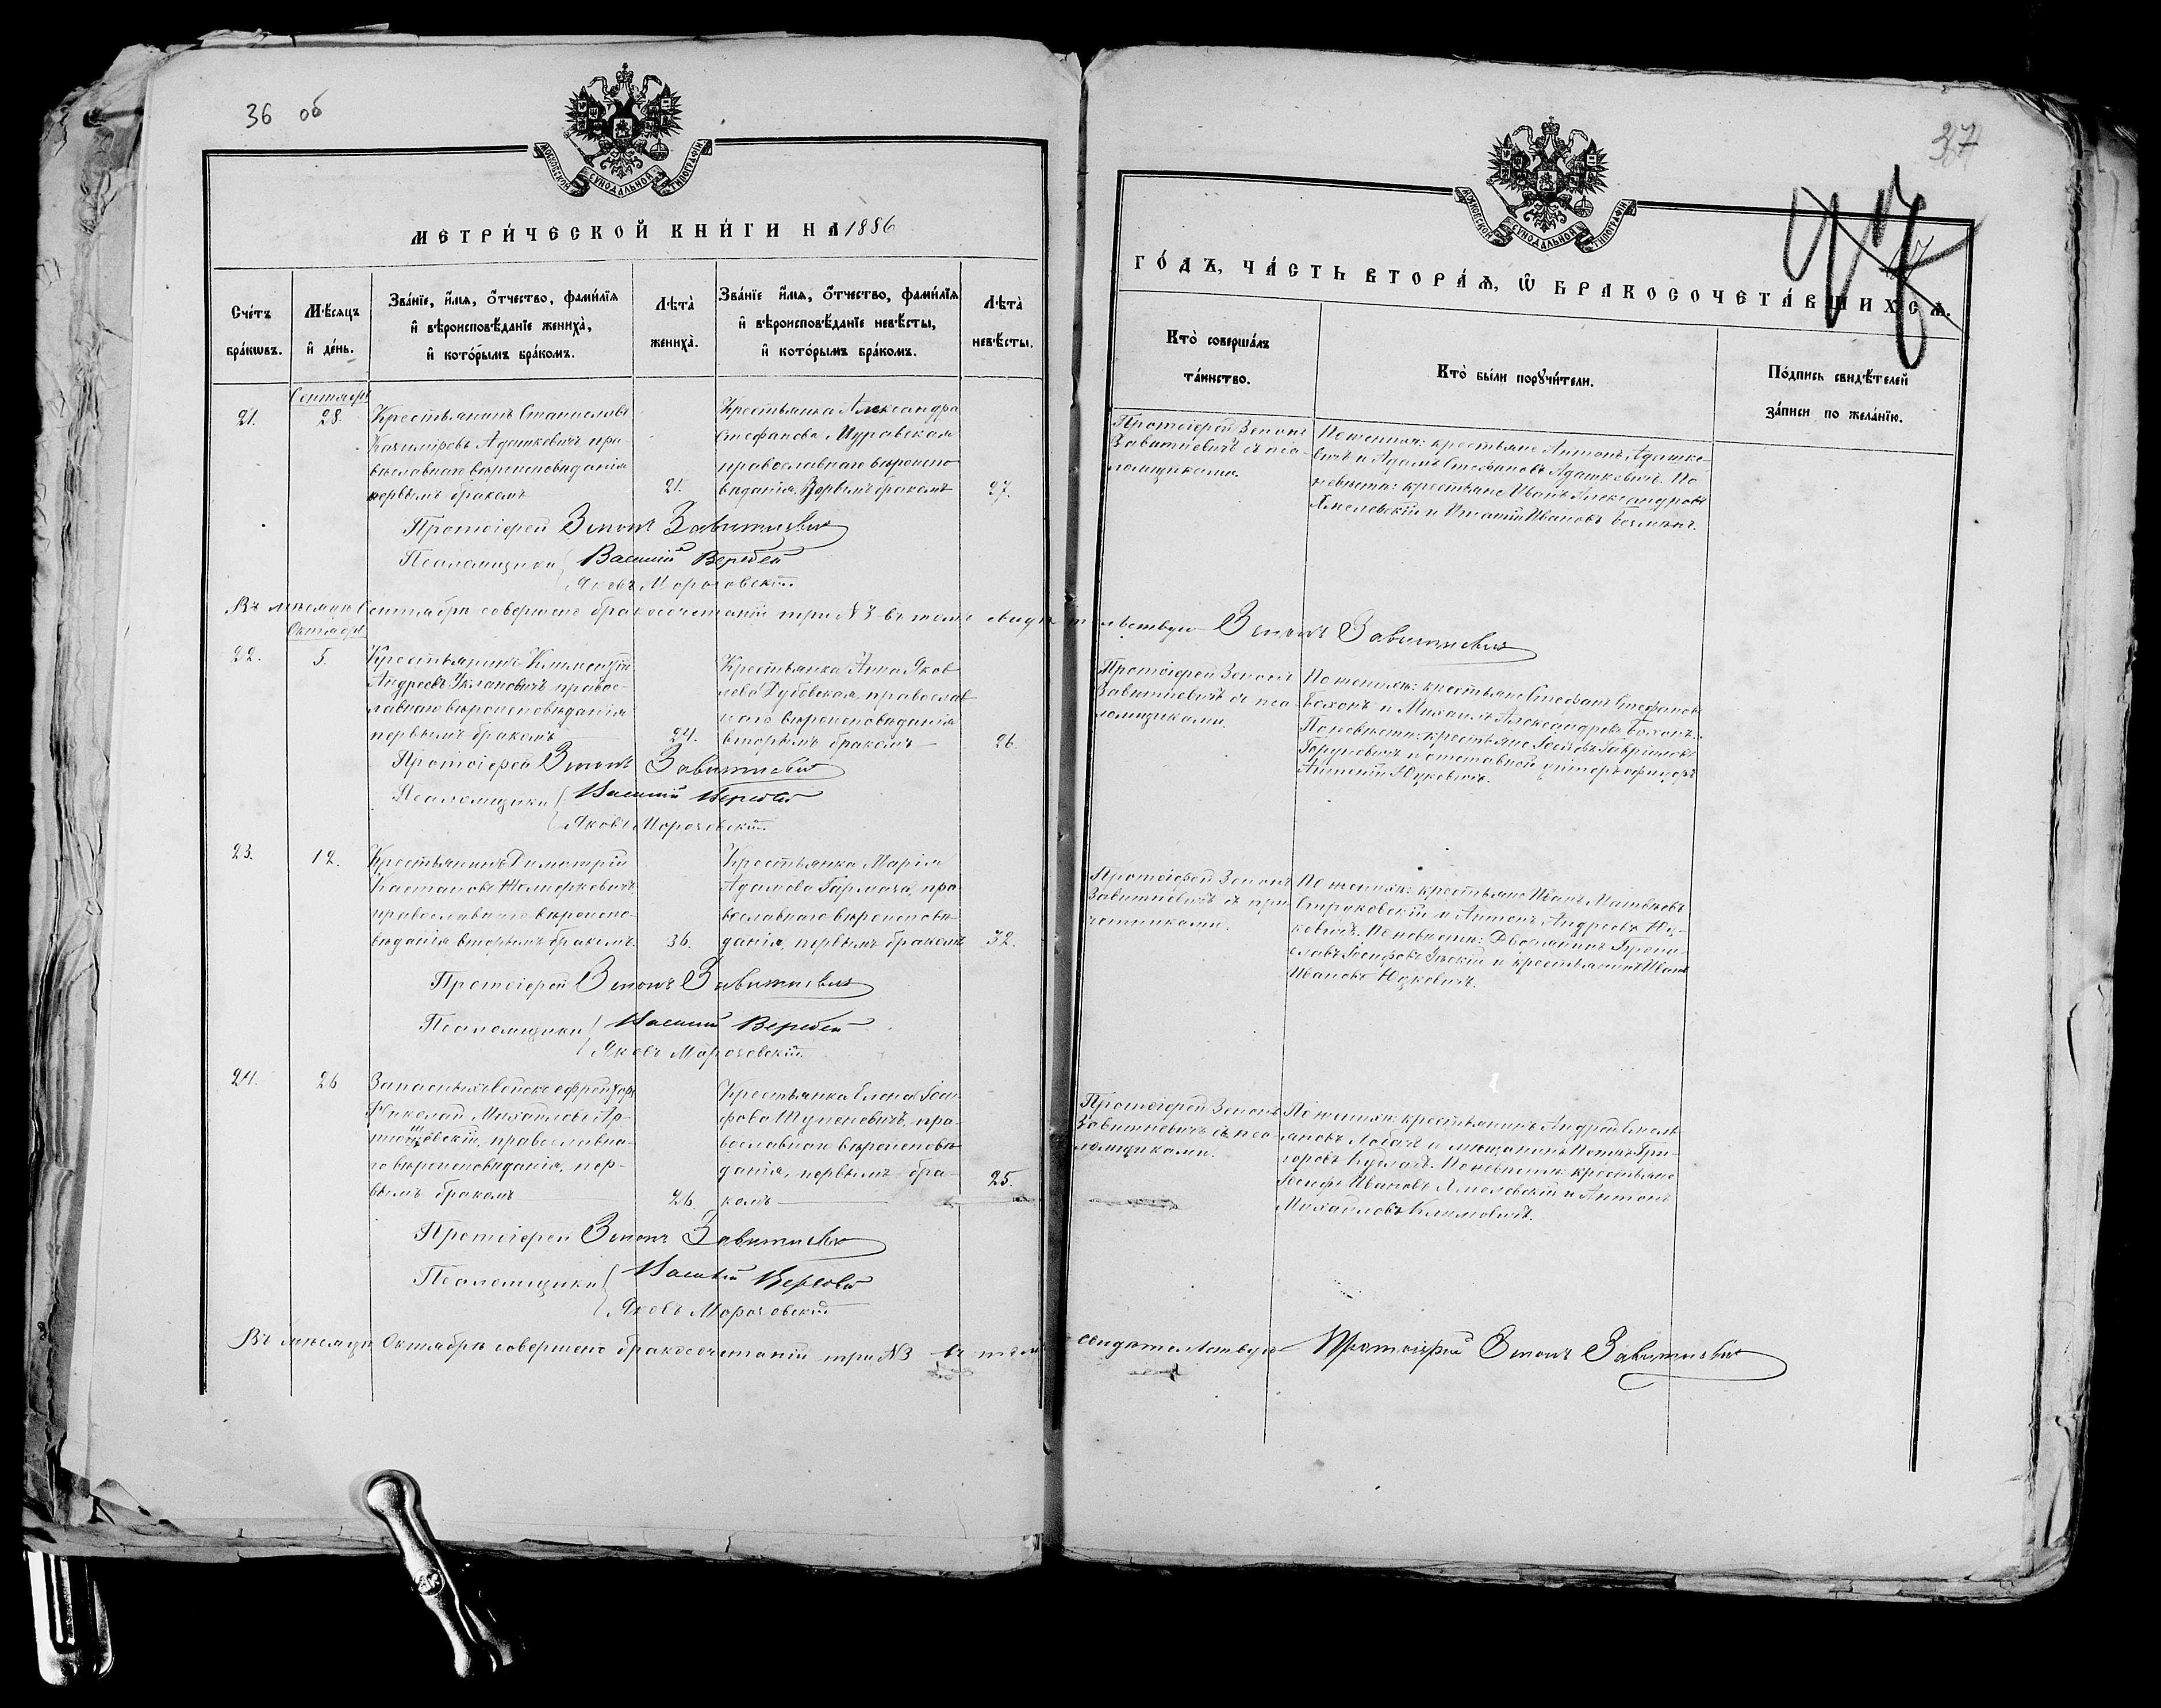 36 об
МОСКОВСКОЙ СѴНОДАЛЬНОЙ ТИПОГРАФІИ
МЕТРИ́ЧЕСКОЙ КНИ́ГИ НА 1886
Сче́тъ бра́кѡвъ.
Мѣ́сяцъ и҆ де́нь.
Зва́нїе, и҆́мя, ѻ҆́тчество, фами́лїя
и҆ вѣроисповѣ́данїе жениха̀,
и҆ кото́рымъ бра́комъ.
Лѣта̀ жениха̀.
Зва́нїе и҆́мя, ѻ҆́тчество, фами́лїя
и҆ вѣроисповѣ́данїе невѣ́сты,
и҆ кото́рымъ бра́комъ.
Лѣта̀ невѣ́сты.
Сентябрь
21.
28.
Крестьянинъ Станиславъ
Казиміровъ Адашкевичъ пра-
вославнаго вѣроисповѣданія
первымъ бракомъ
21.
Крестьянка Александра
Стефанова Муравская
православнаго вѣроиспо
вѣданія, первымъ бракомъ
27.
Протоіерей Зенонъ Завитневичъ
Псаломщики Василій Веребей
Яковъ Морозовскій.
Въ мѣсяцѣ Сентябрѣ совершено бракосочетаній три №3 въ томъ свидѣтельствую Зенонъ Завитневичъ
Октябрь
22.
5.
Крестьянинъ Климентій
Андреевъ Укановичъ правос-
лавнаго вѣроисповѣданія
первымъ бракомъ
24.
Крестьянка Анна Яков
лева Дубовская, православ
наго вѣроисповѣданія
вторымъ бракомъ
26.
Протоіерей Зенонъ Завитневичъ
Псаломщики Василій Веребей
Яковъ Морозовскій.
23.
12.
Крестьянинъ Димитрій
православнаго вѣроиспо-
вѣданія вторымъ бракомъ.
36.
Крестьянка Марія
Адамова Гармоза, пра-
вославнаго вѣроисповѣ-
данія, первымъ бракомъ
32.
Протоіерей Зенонъ Завитневичъ
Псаломщики Василій Веребей
Яковъ Морозовскій.
24.
26
Запасныхъ войскъ ефрейторъ
Николай Михайловъ Ар-
православна-
го вѣроисповѣданія, пер-
вымъ бракомъ
26.
Крестьянка Елена Іоси-
фова Шупеневичъ, пра-
вославнаго вѣроисповѣ-
данія, первымъ бра-
комъ
25.
Протоіерей Зенонъ Завитневичъ
Псаломщики Василій Веребей
Яковъ Морозовскій
Въ мѣсяцѣ Октябрѣ совершено бракосочетаній три №3 въ томъ свидѣтельствую Протоіерей Зенонъ Завитневичъ
37
МОСКОВСКОЙ СѴНОДАЛЬНОЙ ТИПОГРАФІИ
ГО́ДЪ, ЧА́СТЬ ВТОРА́Ѧ, Ѡ҆ БРАКОСОЧЕТА́ВШИХСѦ.
Кто̀ соверша́лъ та́инство.
Кто̀ бы́ли поручи́тели.
По́дпись свидѣ́телей
за́писи по жела́нїю.
Протоіерей Зенонъ
Завитневичъ съ пса-
ломщиками.
По женихѣ: крестьяне Антонъ Адашке-
вичъ и Адамъ Стефановъ Адашкевичъ. По
невѣстѣ: крестьяне Иванъ Александровъ
Хмелевскій и Игнатій Ивановъ
Протоіерей Зенонъ
Завитневичъ съ пса-
ломщиками.
По женихѣ: крестьяне Стефанъ Стефановъ
Боханъ и Михаилъ Александровъ Боханъ.
По невѣстѣ: крестьяне Іосифъ Гавриловъ
и отставной унтеръ-офицеръ
Антоній Юцкевичъ.
Протоіерей Зенонъ
Завитневичъ съ при
четниками.
По женихѣ: крестьяне Иванъ Матвѣевъ
Струковскій и Антонъ Андреевъ Юц-
кевичъ. По невѣстѣ: Дворянинъ Брони-
славъ Іосифовъ и крестьянинъ Иванъ
Ивановъ Юцкевичъ.
Протоіерей Зенонъ
Завитневичъ съ пса-
ломщиками.
По женихѣ: крестьянинъ Андрей Емель-
яновъ Лобачъ и мѣщанинъ Петръ Гри-
горовъ По невѣстѣ: крестьяне
Іосифъ Ивановъ Хмелевскій и Антонъ
Михайловъ Климовичъ.